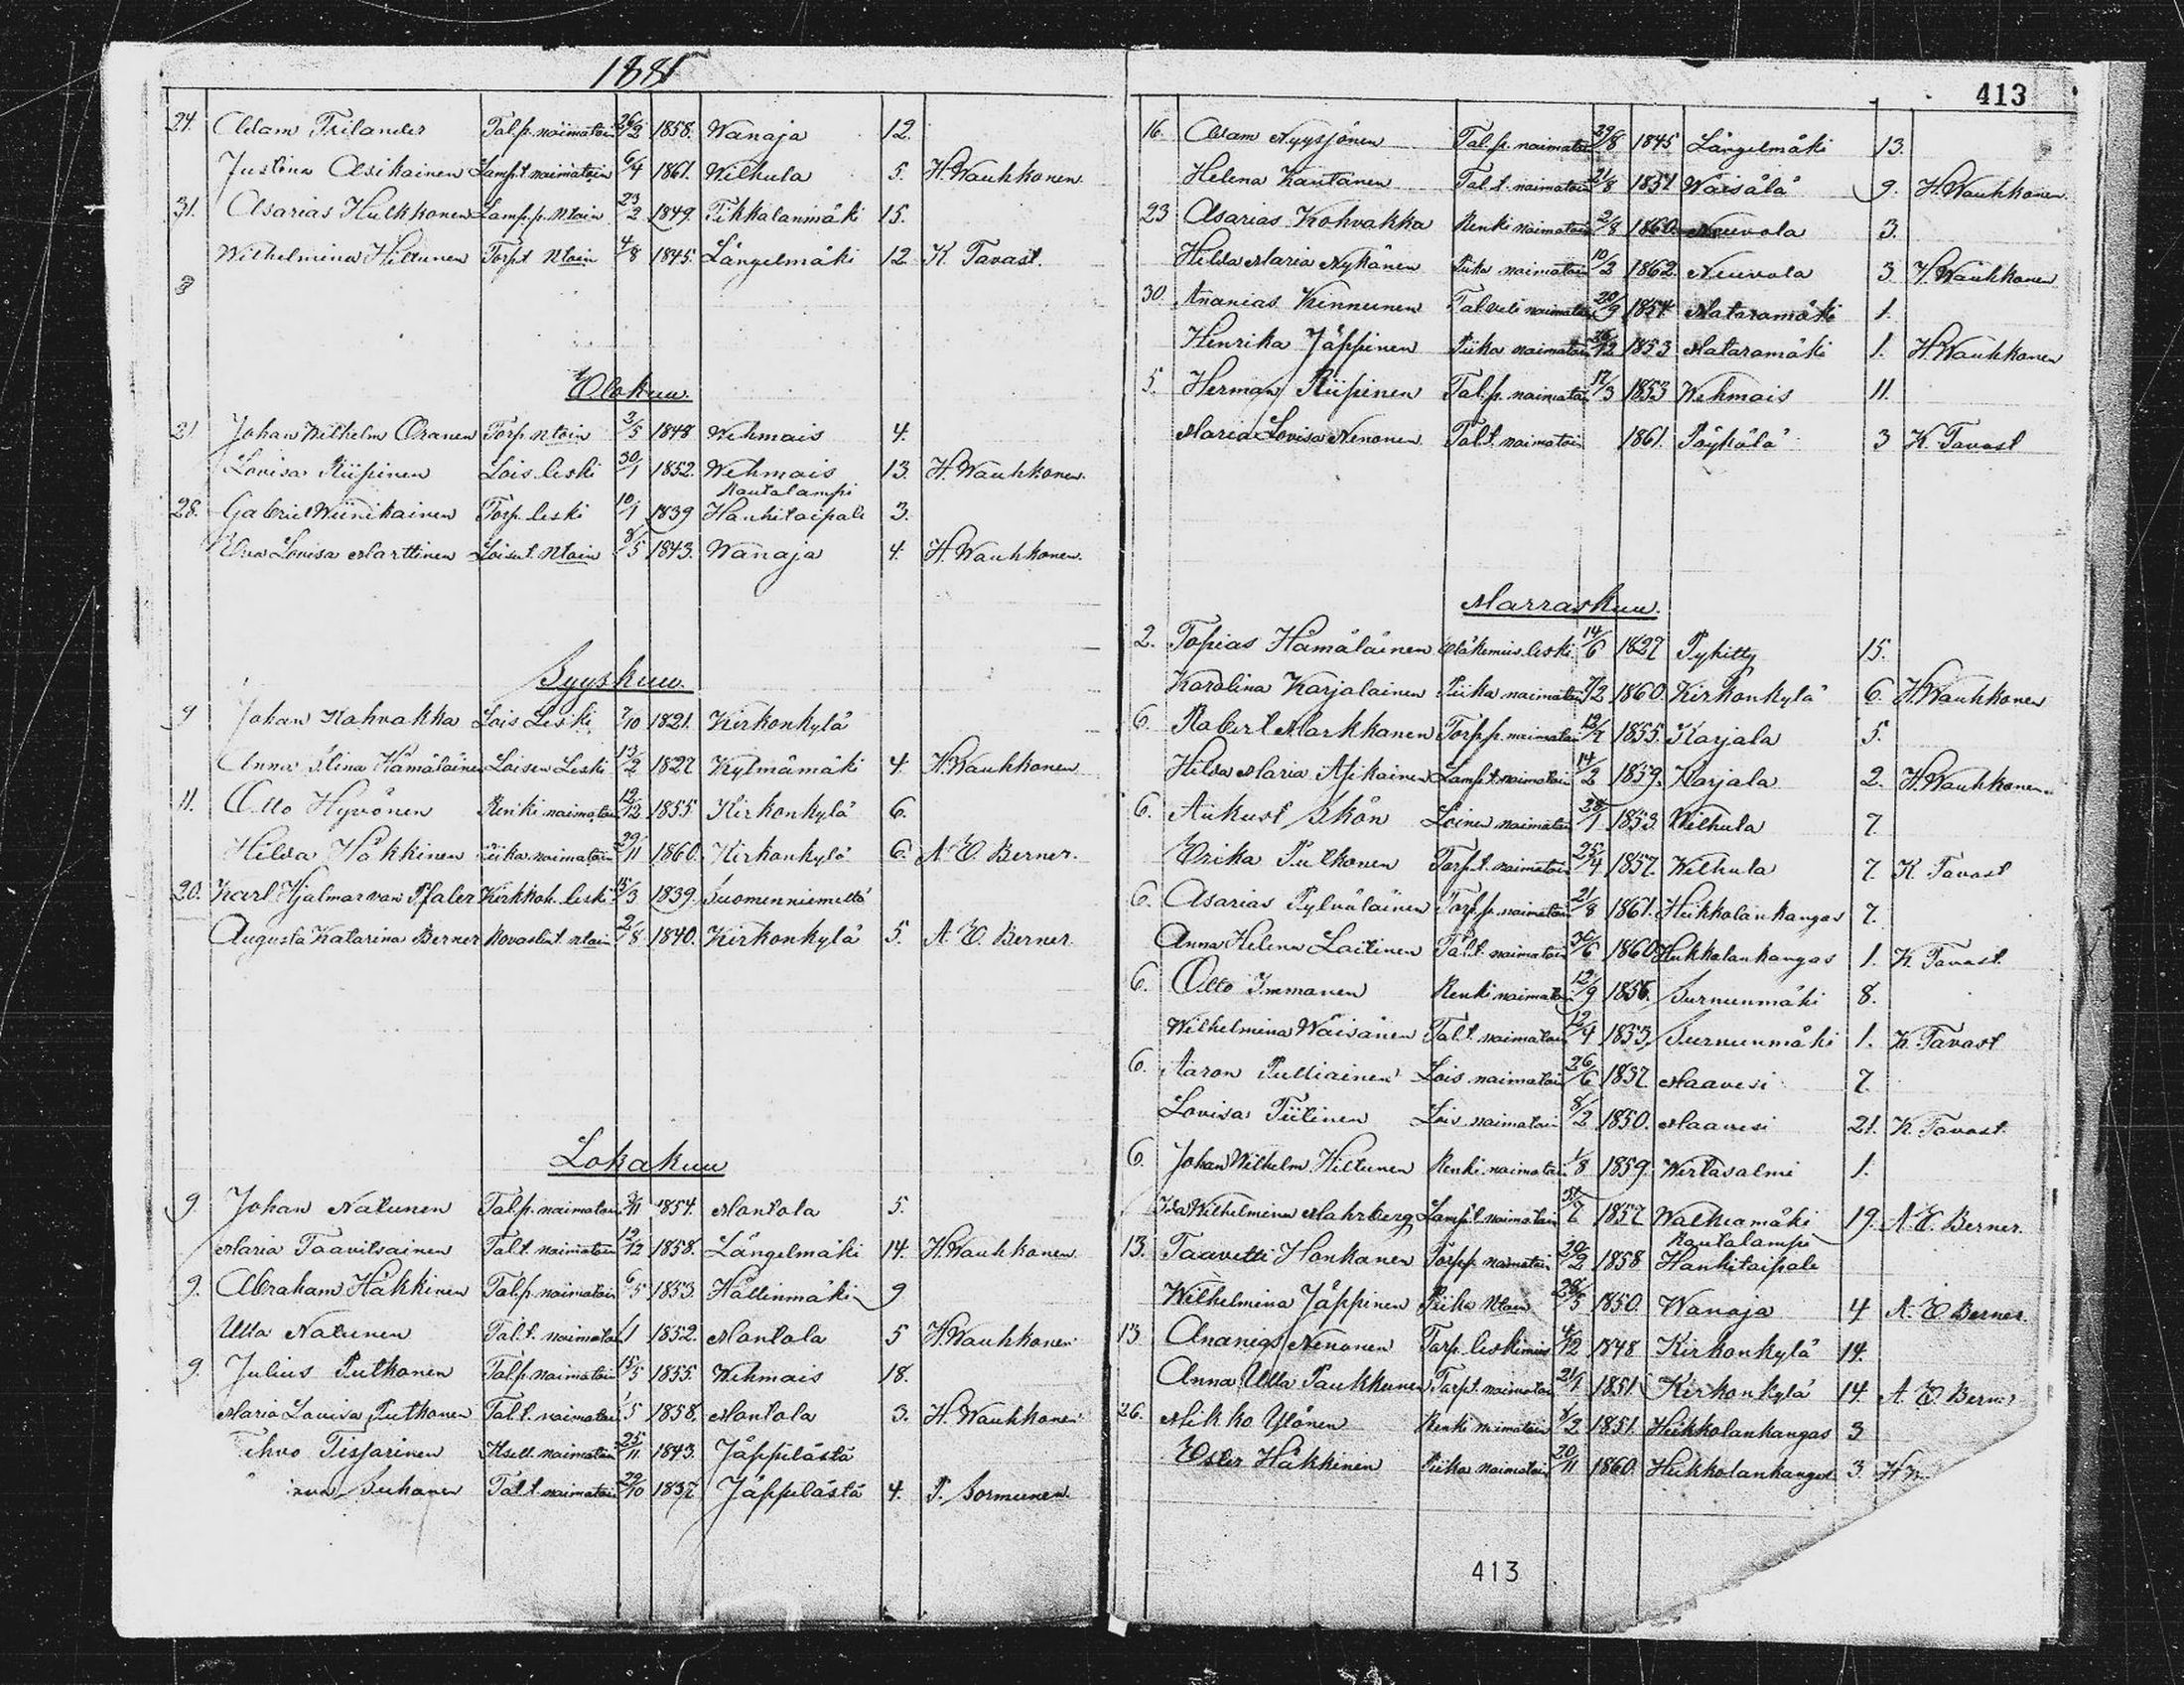 1881
24. Adam Frilander Talp. naimatoin 26/2 1858. Wanaja 12.
Justina Asikainen Lamp.t. naimatoin 6/4 1861. Wilhula 5. H. Waukkonen.
31. Asarias Hulkkonen Lamp.p. ntoin 23/2 1849. Tikkalanmäki 15.
Wilhelmina Hiltunen Torp.t ntoin 4/8 1845. Längelmäki 12 K. Tavast.
Elokuu.
21 Johan Wilhelm Oranen Torp. ntoin 3/5 1848 Wehmais 4.
Lovisa Riipinen Lois. leski 30/1 1852. Wehmais 13. H. Waukkonen.
Rautalampi
28. Gabriel Wiinikainen Torp. leski 10/1 1839 Hankitaipale 3.
Eva Lovisa Marttinen Loisen t. ntoin 8/5 1843. Wanaja 4. H. Waukkonen.
Syyskuu.
4 Johan Kahvakka Lois Leski 7/10 1821. Kirkonkylä
Anna Stina Hämäläinen Loisen Leski 13/2 1827 Kylmämäki 4. H. Waukkonen
11. Otto Hyvönen Renki naimatoin 12/12 1855 Kirkonkylä 6.
Hilda Häkkinen Piika naimatoin 29/11 1860. Kirkonkylä 6. A. E. Berner.
20. Karl Hjalmar von Pfaler Kirkkoh. leski 15/3 1839. Suomenniemeltä
Augusta Katarina Berner Rovastin t. ntoin 2/8 1840. Kirkonkylä 5. A. E. Berner
Lokakuu
9. Johan Natunen Talp. naimatoin 1854. Montola 5.
Maria Taavitsainen Tal.t. naimatoin 12/12 1858. Längelmäki 14. H. Waukkonen.
9. Abraham Häkkinen Tal.p. naimatoin 6/5 1853. Hällinmäki 9
Ulla Natunen Tal.t. naimatoin 1852. Montola 5 H. Waukkonen
9. Julius Putkonen Talp. naimatoin 15/5 1855. Wehmais 18.
Maria Lovisa Putkonen Tal.t. naimatoin 1858. Montola 3. H. Waukkonen
Tihvo Tissarinen Itsell. naimatoin 25/11 1843. Jäppilästä
Suhonen Tal.t. naimatoin 29/10 1837 Jäppilästä 4. P. Sormunen.
413
16. Adam Nyyssönen Tal.p. naimatoin 29/8 1845 Längelmäki 13.
Helena Kautanen Tal.t. naimatoin 21/8 1857 Wäisälä 9. H. Waukkonen.
23 Asarias Kohvakka Renki naimatoin 2/8 1860. Neuvola 3.
Hilda Maria Nykänen Piika naimatoin 10/2 1862. Neuvola 3 H. Waukkonen
30. Ananias Kinnunen Tal. veli naimatoin 20/9 1854. Mataramäki 1.
Henrika Jäppinen Piika naimatoin 26/12 1853 Mataramäki 1. H. Waukkonen
5. Herman Riipinen Tal.p. naimatoin 17/3 1853 Wehmais 11.
Maria Lovisa Nenonen Tal.t. naimatoin 1861. Pöyhölä 3 K. Tavast
Marraskuu.
2. Topias Hämäläinen Eläkemies leski 14/6 1827 Pyhitty 15.
Karolina Karjalainen Piika naimatoin 1860. Kirkonkylä 6. H. Waukkonen
6. Robert Markkanen Torp.p. naimatoin 1855. Karjala 5.
Hilda Maria Asikainen Lamp.t. naimatoin 14/2 1859. Karjala 2. H. Waukkonen.
6. Aukust Skön Loinen naimatoin 28/1 1853. Wilhula 7.
Erika Putkonen Torp.t. naimatoin 25/4 1857. Wilhula 7. K. Tavast
6. Asarias Pylväläinen Torp.p. naimatoin 21/8 1861. Heikkolankangas 7.
Anna Helena Laitinen Tal.t. naimatoin 30/6 1860. Heikkolankangas 1. K. Tavast.
6. Otto Immanen Renki naimatoin 12/9 1856. Surnunmäki 8.
Wilhelmina Wäisänen Tal.t. naimatoin 12/4 1853. Surnunmäki 1. K. Tavast
6. Aaron Pulliainen Lois naimatoin 26/6 1857 Maavesi 7.
Lovisa Tiitinen Lois naimatoin 8/2 1850. Maavesi 21. K. Tavast.
6. Johan Wilhelm Hiltunen Renki naimatoin 1/8 1859. Wirtasalmi 1.
Ida Wilhelmina Mahrberg Lamp.t. naimatoin 1857 Walkeamäki 19. A. E. Berner.
Rautalampi
13. Taavetti Honkanen Torp.p. naimatoin 20/2 1858 Hankitaipale
Wilhelmina Jäppinen Piika ntoin 28/5 1850. Wanaja 4 A. E. Berner.
13 Ananias Nenonen Torp. leskimies 4/12 1848 Kirkonkylä 14.
Anna Ulla Paukkunen Torp.t. naimatoin 21/1 1851. Kirkonkylä 14. A. E. Berner
26. Mikko Ylönen Renki naimatoin 8/2 1851. Heikkolankangas 3
Ester Häkkinen Piika naimatoin 20/11 1860. Heikkolankangas 3.
413